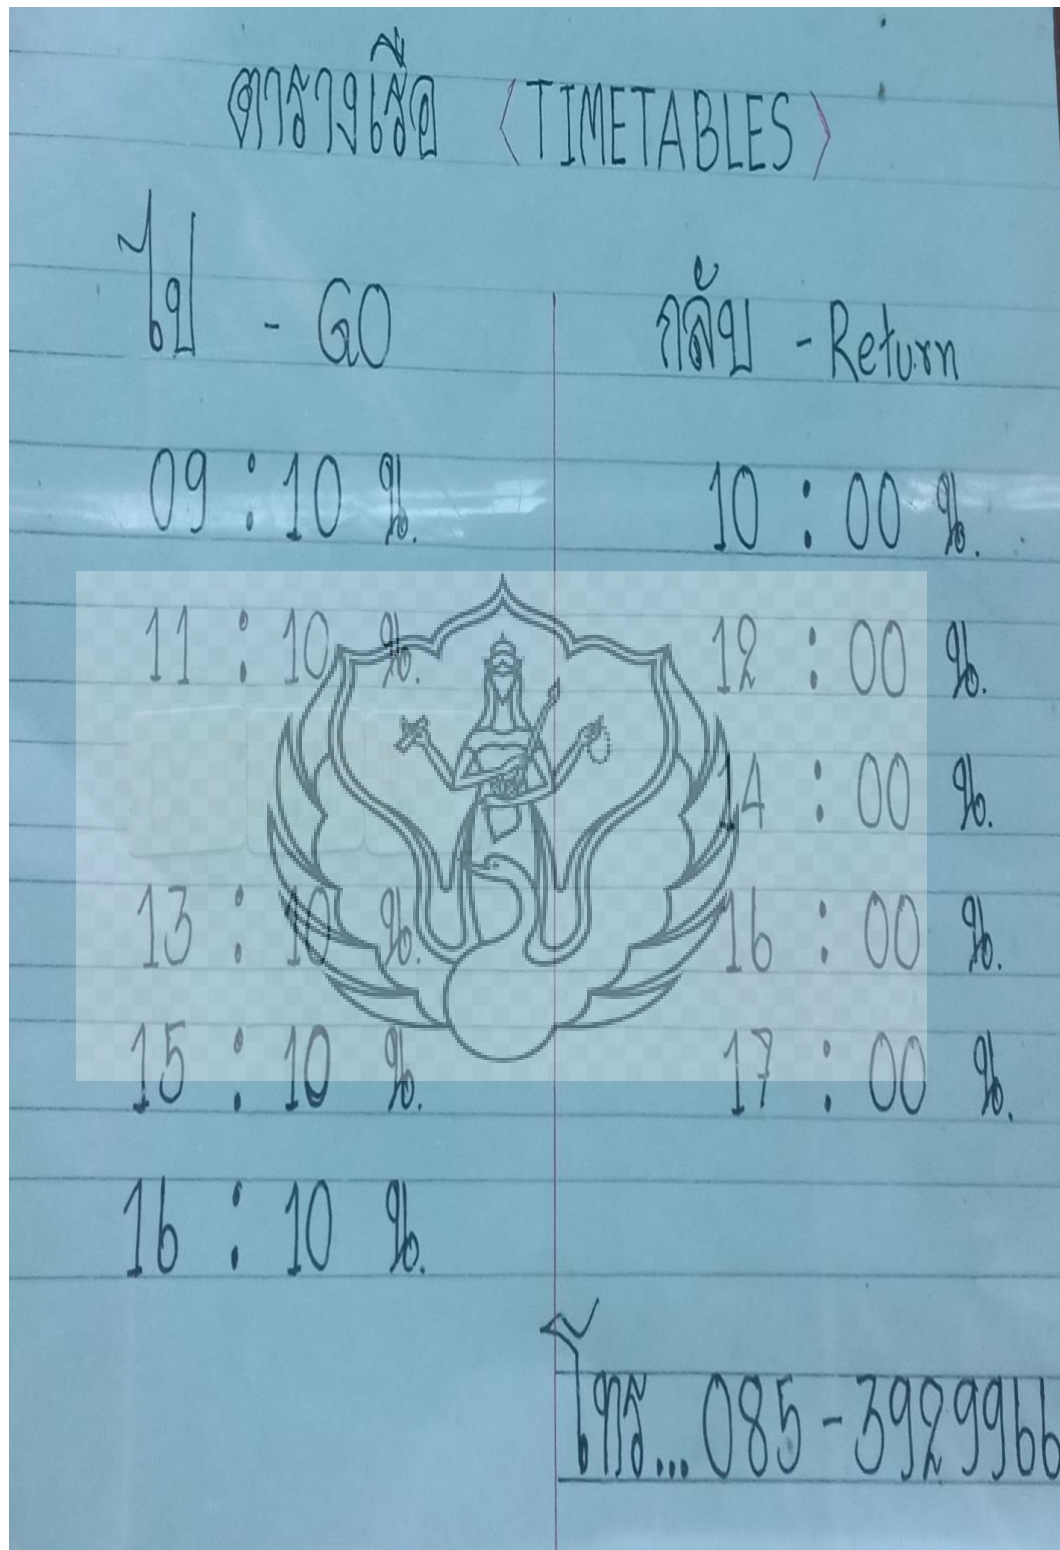 ตารางเรือ <TIMETABLES>
ไป - GO
กลับ - Return
09 : 10 น.
10 : 00 น.
11 : 10 น.
12 : 00 น.
14 : 00 น.
13 : 10 น.
16 : 00 น.
15 : 10 น.
17 : 00 น.
16 : 10 น.
โทร... 085-3929966